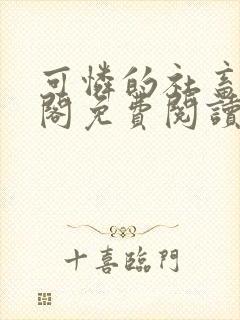 可憐的社畜
閣免費閱讀
十喜臨門